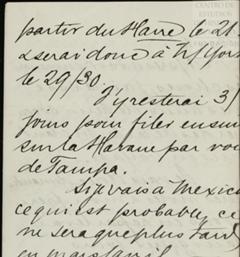 partir du Havre le 21
& serai donc à N/York
le 29/30.
J'y resterai 3/
jours pour filer ensui
sur la Havane par voi
de Tampa.
Si je vais à Mexico
ce qui est probable, ce
ne sera que plus tard
en mars/avril